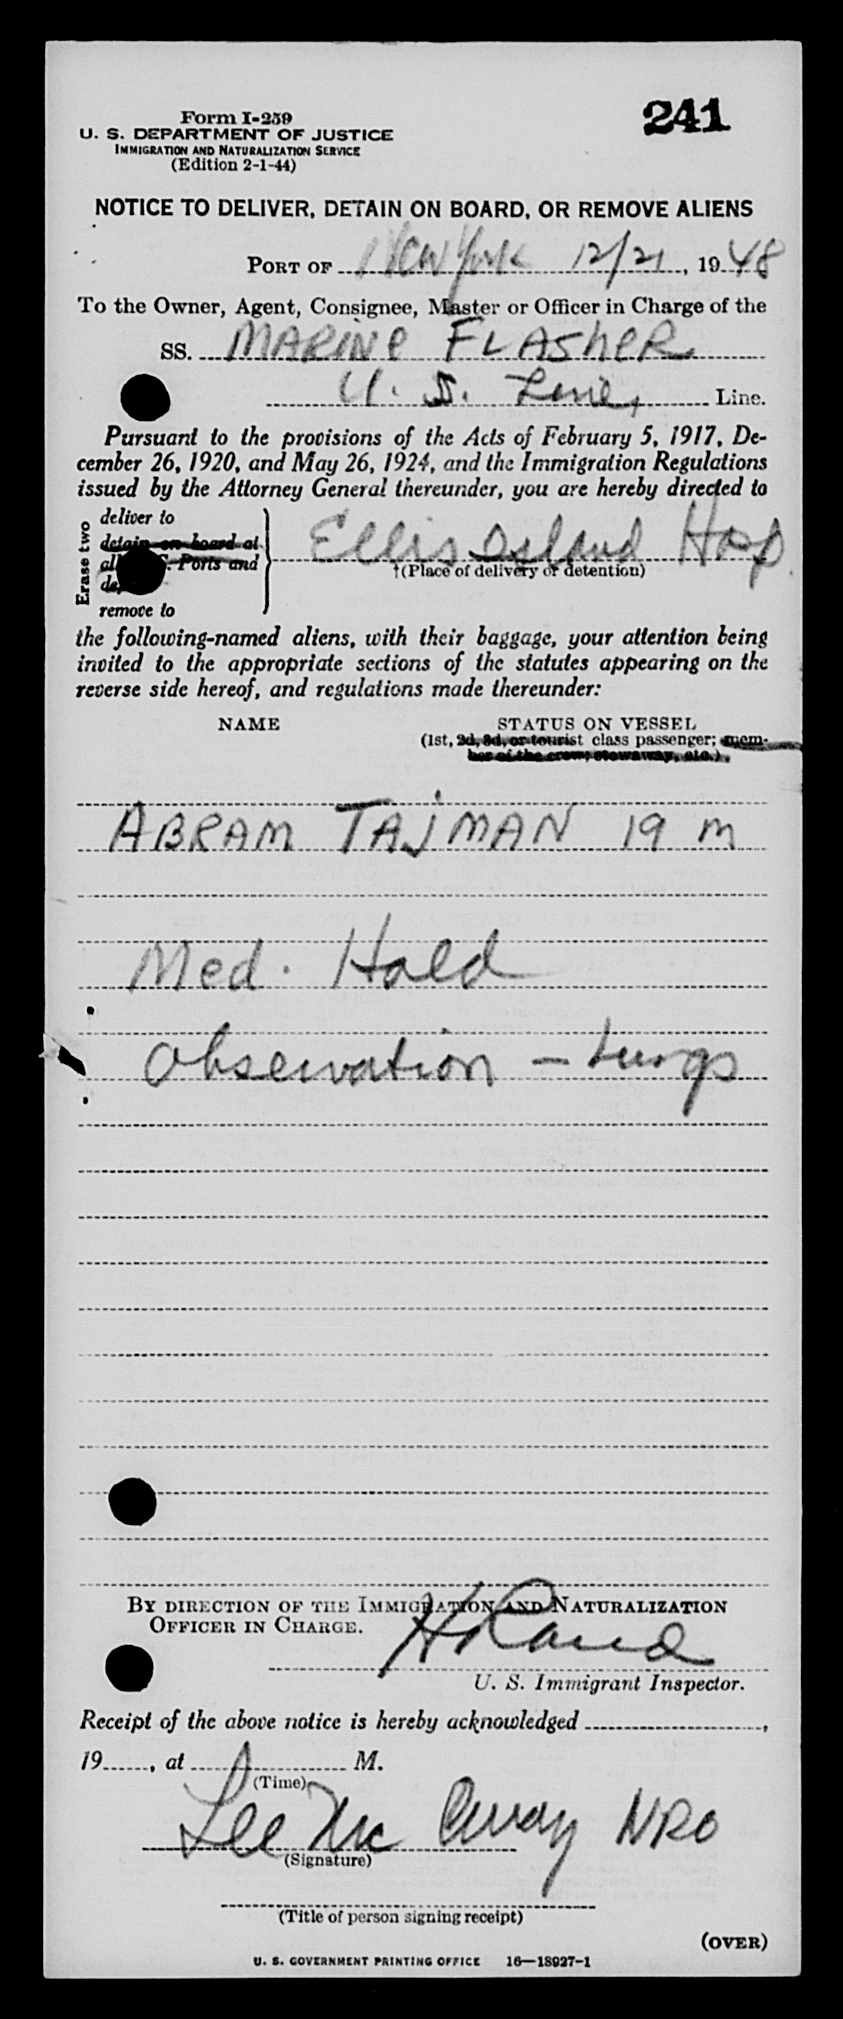 241
Form I-259
U. S. DEPARTMENT OF JUSTICE
IMMIGRATION AND NATURALIZATION SERVICE
(Edition 2-1-44)
NOTICE TO DELIVER, DETAIN ON BOARD, OR REMOVE ALIENS
PORT OF New York 12/21, 1948
To the Owner, Agent, Consignee, Master or Officer in Charge of the
SS. MARINE FLASHER
U. S. Line, Line.
Pursuant to the provisions of the Acts of February 5, 1917, De-
cember 26, 1920, and May 26, 1924, and the Immigration Regulations
issued by the Attorney General thereunder, you are hereby directed to
Erase two
deliver to
detain on board at
al Ports and
de
remove to
Ellis Island Hosp.
(Place of delivery or detention)
the following-named aliens, with their baggage, your attention being
invited to the appropriate sections of the statutes appearing on the
reverse side hereof, and regulations made thereunder:
NAME STATUS ON VESSEL
(1st, 2d, 3d, or tourist class passenger; mem-
ber of the crew, stowaway, etc.)
ABRAM TAJMAN 19 M
Med. Hold
Observation - Lungs
BY DIRECTION OF THE IMMIGRATION AND NATURALIZATION
OFFICER IN CHARGE.
U. S. Immigrant Inspector.
Receipt of the above notice is hereby acknowledged ,
19 , at M.
(Time)
Lee Mc NRO
(Signature)
(Title of person signing receipt)
(OVER)
U. S. GOVERNMENT PRINTING OFFICE 16—18927-1